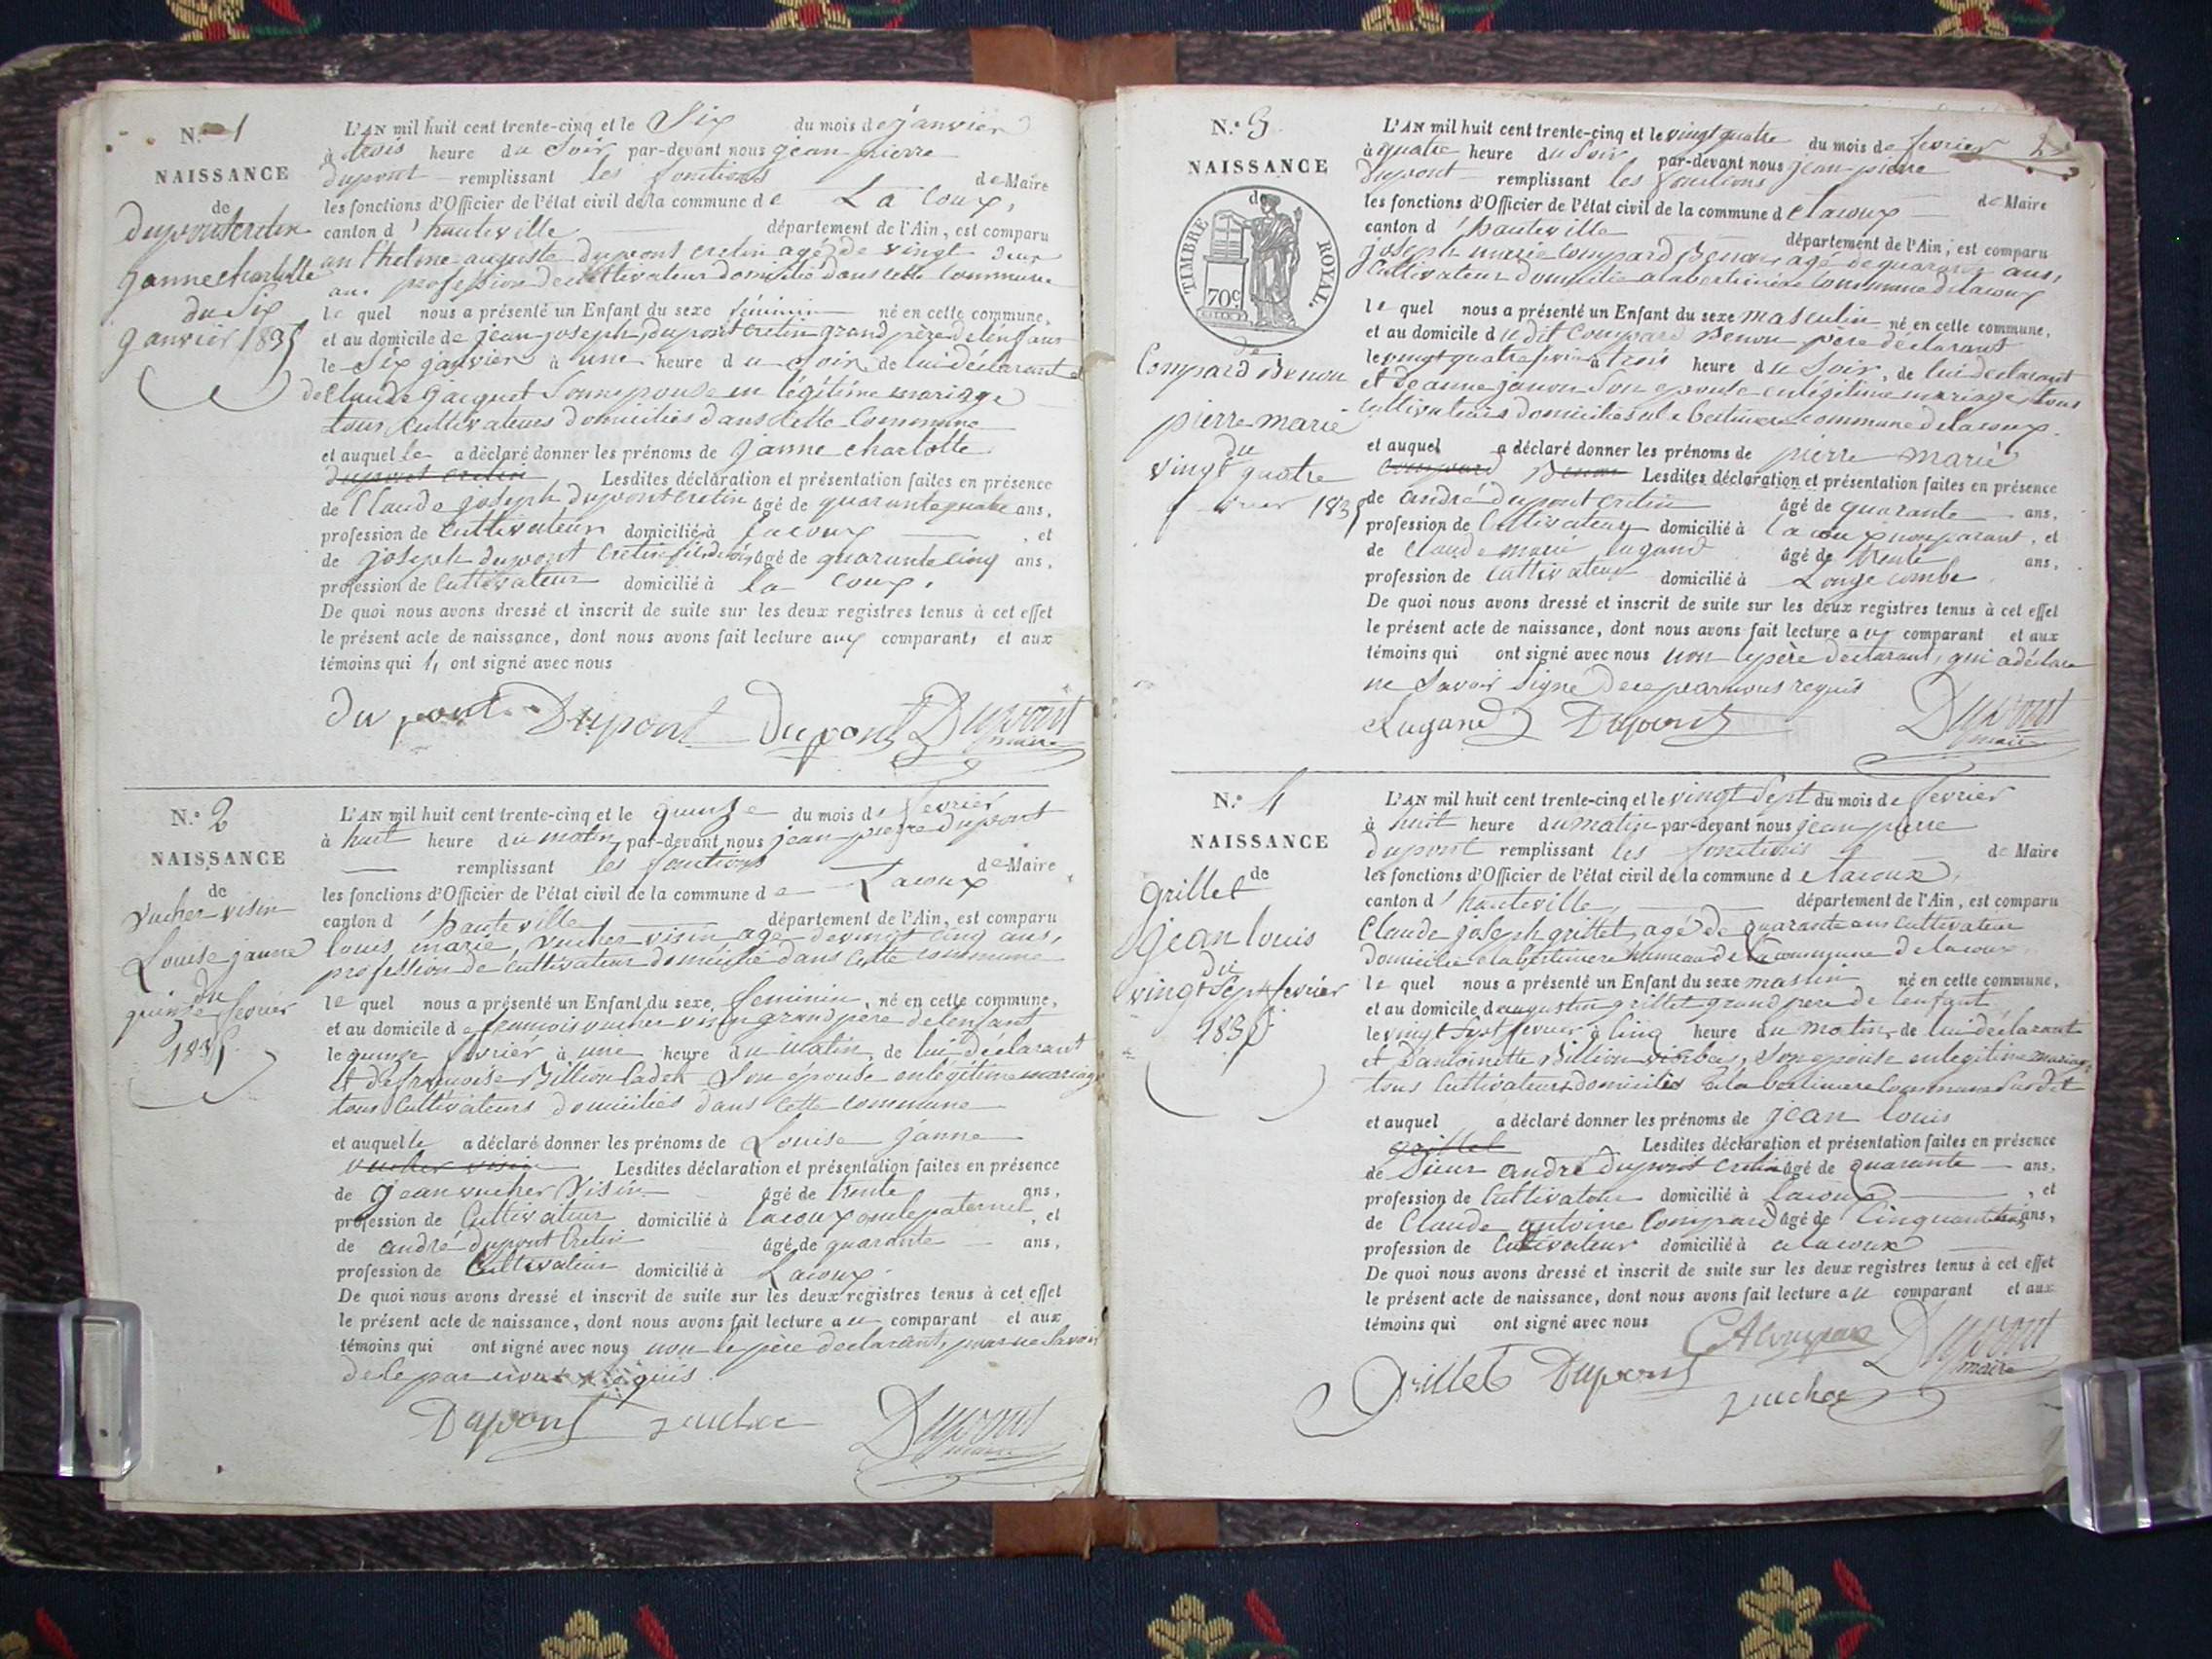 N.° 1
NAISSANCE
de
dupont cretin
janne charlotte
du Six
janvier 1835
L'AN mil huit cent trente-cinq et le Six du mois de janvier
à trois heure du Soir par-devant nous jean pierre
dupont remplissant les fonctions de Maire
les fonctions d'Officier de l'état civil de la commune de La Coux,
canton d'hauteville département de l'Ain, est comparu
anthelme auguste dupont cretin agé de vingt deux
ans profession de cultivateur domicilié dans cette Commune
le quel nous a présenté un Enfant du sexe féminin né en cette commune,
et au domicile de jean joseph dupont cretin grand père de lenfant
le Six janvier à une heure du Soir, de lui déclarant et
de Claude jacquet Son epouse en légitime mariage
tous Cultivateurs domiciliés dans Cette Commune
et auquelle a déclaré donner les prénoms de janne charlotte
dupont cretin Lesdites déclaration et présentation faites en présence
de Claude joseph dupont cretin âgé de quarante quatre ans,
profession de Cultivateur domicilié à Lacoux , et
de joseph dupont Cretin âgé de quarante cinq ans,
profession de Cultivateur domicilié à la Coux,
De quoi nous avons dressé et inscrit de suite sur les deux registres tenus à cet effet
le présent acte de naissance, dont nous avons fait lecture aux comparants et aux
témoins qui ont signé avec nous
du pont Dupont dupont Dupont
maire
N.° 2
NAISSANCE
de
vucher visin
Louise janne
du
quinze fevrier
1835
L'AN mil huit cent trente-cinq et le quinze du mois de fevrier
à huit heure du matin, par-devant nous jean pierre dupont
remplissant les fonctions de Maire
les fonctions d'Officier de l'état civil de la commune de Lacoux
canton d'hauteville département de l'Ain, est comparu
louis marie, vucher visin agé de vingt cinq ans,
profession de cultivateur domicilié dans cette commune
le quel nous a présenté un Enfant du sexe feminin, né en cette commune,
et au domicile de francois vucher visin grand père de lenfant
le quinze février à une heure du matin, de lui déclarant
et de françoise Billion Cadet Son épouse en légitime mariage
tous Cultivateurs domiciliés dans cette commune
et auquelle a déclaré donner les prénoms de Louise janne
vucher visin Lesdites déclaration et présentation faites en présence
de jean vucher visin âgé de trente ans,
profession de Cultivateur domicilié à lacoux oncle paternel, et
de andré dupont Cretin âgé de quarante ans,
profession de Cultivateur domicilié à Lacoux.
De quoi nous avons dressé et inscrit de suite sur les deux registres tenus à cet effet
le présent acte de naissance, dont nous avons fait lecture au comparant et aux
témoins qui ont signé avec nous non le père declarant, pour ne Savoir
de ce par nous requis.
Dupont vucher Dupont
maire
2
N.° 3
NAISSANCE
de
TIMBRE ROYAL.
70c
de
Compard Benon
pierre marie
du
vingt quatre
1835
L'AN mil huit cent trente-cinq et le vingt quatre du mois de fevrier
à quatre heure du Soir par-devant nous jean pierre
dupont remplissant les fonctions de Maire
les fonctions d'Officier de l'état civil de la commune de lacoux
canton d'hauteville département de l'Ain, est comparu
joseph marie compard Benon, agé de quarante ans,
Cultivateur domicilié commune de lacoux
le quel nous a présenté un Enfant du sexe masculin né en cette commune,
et au domicile du dit Compard Benon père déclarant
le vingt quatre fevrier à trois heure du Soir, de lui déclarant
et de anne janon Son epouse en légitime mariage, tous
cultivateurs domiciliés commune de lacoux.
et auquel a déclaré donner les prénoms de pierre marie
Compard Benon Lesdites déclaration et présentation faites en présence
de andré dupont cretin âgé de quarante ans,
profession de Cultivateur domicilié à la coux non parant, et
de Claude marie lugand âgé de trente ans,
profession de Cultivateur domicilié à Longecombe
De quoi nous avons dressé et inscrit de suite sur les deux registres tenus à cet effet
le présent acte de naissance, dont nous avons fait lecture au comparant et aux
témoins qui ont signé avec nous non le père déclarant, qui a déclaré
ne Savoir Signé de ce par nous requis
Lugand Dupont Dupont
maire
N.° 4
NAISSANCE
de
grillet
jean louis
du
vingt Sept fevrier
1835
L'AN mil huit cent trente-cinq et le vingt Sept du mois de fevrier
à huit heure du matin par-devant nous jean pierre
dupont remplissant les fonctions de Maire
les fonctions d'Officier de l'état civil de la commune de lacoux,
canton d'hauteville, département de l'Ain, est comparu
Claude joseph grillet, agé de quarante ans cultivateur
domicilié hameau de la commune de lacoux
le quel nous a présenté un Enfant du sexe masculin né en cette commune,
et au domicile d augustin grillet grand pere de lenfant
le vingt Sept fevrier à Cinq heure du matin, de lui déclarant
et d'antoinette Billion Son epouse en legitime mariage
tous Cultivateurs domiciliés Commune Susdit
et auquel a déclaré donner les prénoms de jean louis
grillet Lesdites déclaration et présentation faites en présence
de Sieur andré dupont cretin âgé de quarante ans,
profession de Cultivateur domicilié à lacoux , et
de Claude antoine Compard âgé de Cinquante ans,
profession de Cultivateur domicilié à a lacoux
De quoi nous avons dressé et inscrit de suite sur les deux registres tenus à cet effet
le présent acte de naissance, dont nous avons fait lecture au comparant et aux
témoins qui ont signé avec nous
Grillet Dupont vucher Dupont
maire